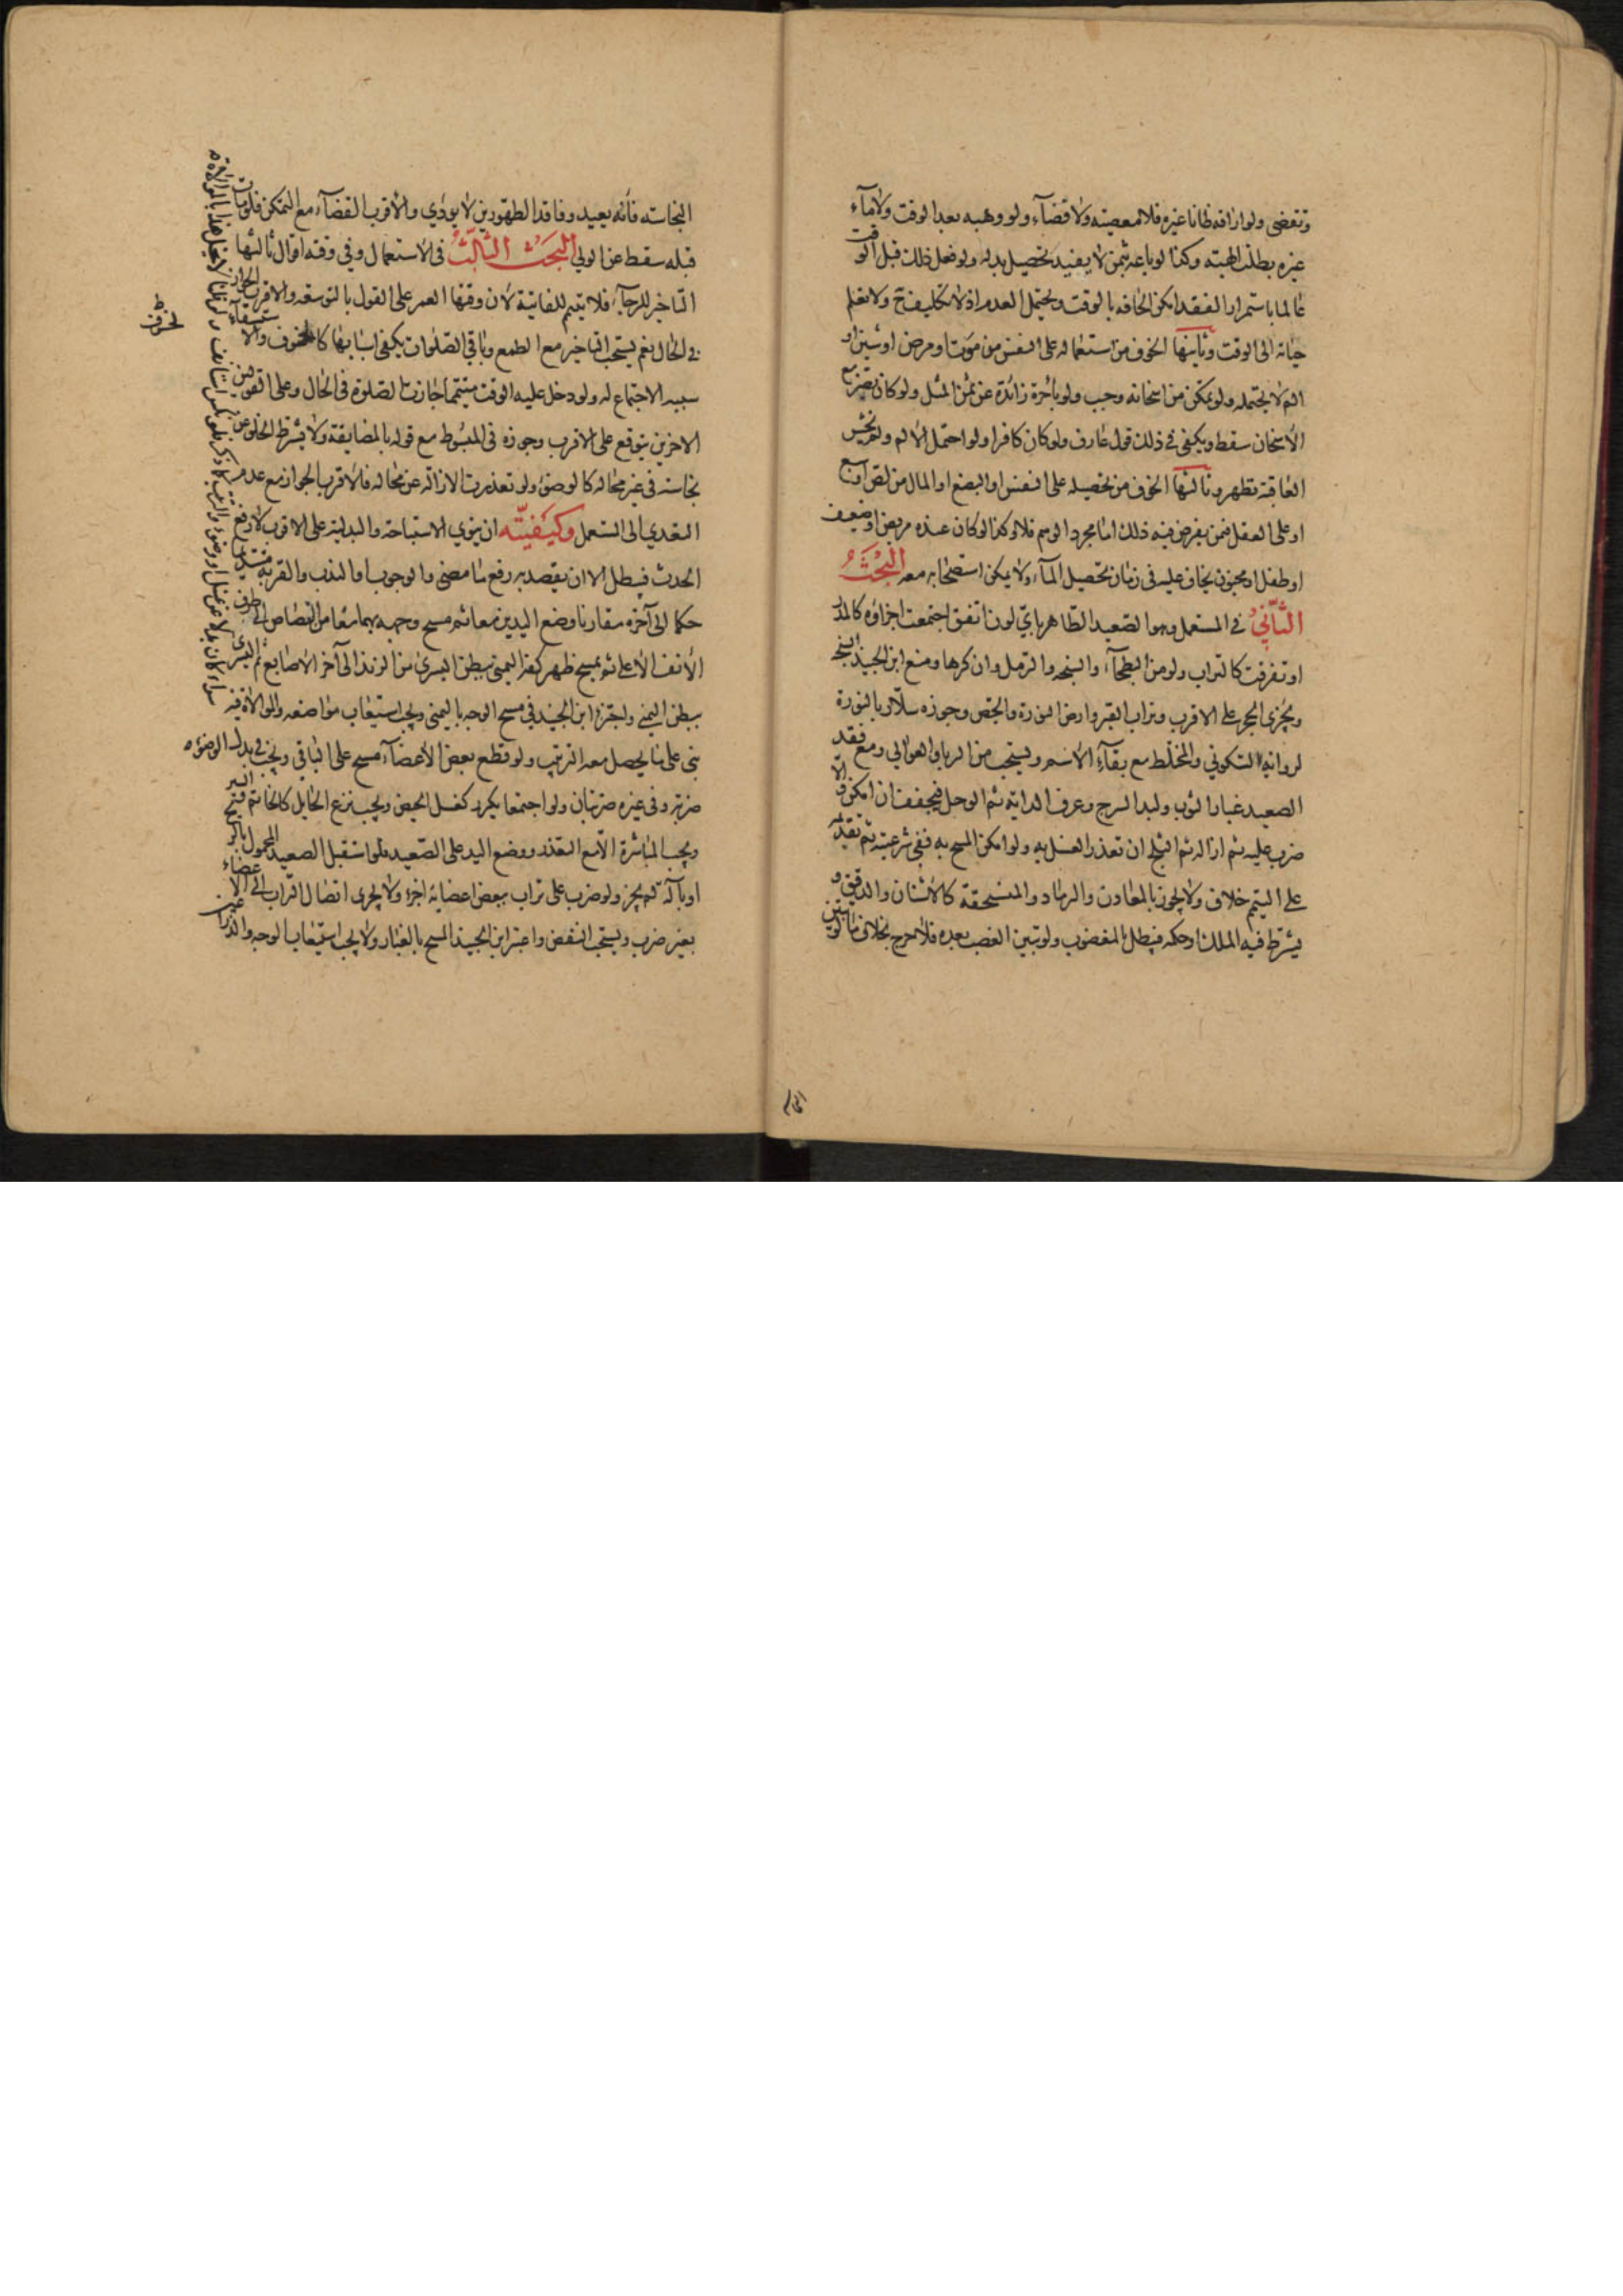 وتقضى ولو اراقه ظانا غيره فلا معصيته ولا قضآء ولو وهبه بعد الوقت ولا مآء
غيره بطلت الهبته وكذا لو باعه بثمن لا يفيد تحصيل بدله ولو فعل ذلك قبل الوقت
عالما باستمرار الفقد امكن الحاقه بالوقت ويحتمل العدم اذ لا تكليف ح ولا تعلم
حياته الى الوقت وثانيها الخوف من استعماله على النفس من موت او مرض او شين او
الم لا يحتمله ولو تمكن من اسخانه وجب ولو باجرة زائدة عن ثمن المثل ولو كان
الاسخان سقط ويكفى فى ذلك قول عارف ولو كان كافرا ولو احتمل الالم ولم يخش
العاقبة تطهر وثالثها الخوف من تحصيله على النفس او البضع او المال من لص او سبع
او على العقل فمن يفرض فيه ذلك اما مجرد الوهم فلا وكذا لو كان عنده مريض او ضعيف
او طفل او مجنون يخاف عليه فى زمان تحصيل المآء ولا يمكن استصحابه معه البحث
الثاني في المستعمل وهو الصعيد الطاهر باي لون اتفق اجتمعت اجزاؤه كالمدر
او تفرقت كالتراب ولو من البطحآء والسبخه والرمل وان كرها ومنع ابن الجنيد السبخ
ويجزى الحجر على الاقرب وتراب القبر وارض النورة والجص وجوزه سلار بالنورة
لروايه السكوني والمختلط مع بقآء الاسم ويستحب من الربا والعوالي ومع فقد
الصعيد غبار الثوب ولبد السرج وعرف الدابه ثم الوحل فيجففه ان امكن والا
ضرب عليه ثم ازاله ثم الثلج ان تعذر الغسل به ولو امكن المسح به ففى شرعيته ثم تقديمه
على التيمم خلاف ولا يجوز بالمعادن والرماد والمنسحقة كالاشنان والدقيق و
يشترط فيه الملك او حكمه فيبطل المغصوب ولو تبين الغصب بعده فلا حرج بخلاف ما لو تبين
النجاسته فانه يعيد وفاقد الطهورين لا يودي والاقرب القضآء مع التمكن فلو مات
قبله سقط عن الولي البحث الثالث فى الاستعمال وفي وقته اقوال ثالثها
التاخير للرجآء فلا تيمم للفايتة لان وقتها العمر على القول بالتوسعه والاقرب الجواز
في الحال نعم يستحب التاخير مع الطمع وباقي الصلوات يكفى اسبابها كالخسوف والاستسقآء
سببه الاجتماع له ولو دخل عليه الوقت متيمما جازت الصلوة فى الحال وعلى القولين
الاخرين يتوقع على الاقرب وجوزه فى المبسوط مع قوله بالمضايقة ولا يشترط الخلو عن
نجاسته فى غير محاله كالوضوء ولو تعذرت الازاله عن محاله فالاقرب الجواز مع عدم
التعدي الى المستعمل وكيفيته ان ينوي الاستباحة والبدلية على الاقرب لا رفع
الحدث فيبطل الا ان يقصد به رفع ما مضى والوجوب او الندب والقربه مستديم
حكما الى آخره مقارنا وضع اليدين معا ثم مسح وجهه بهما معا من القصاص الى طرف
الانف الاعلى ثم يمسح ظهر كفه اليمنى ببطن اليسرى من الزند الى آخر الاصابع ثم اليسرى
ببطن اليمنى ولم يجتز ابن الجنيد في مسح الوجه باليمنى ويجب استيعاب مواضعه والموالاة فيه
بنى على ما يحصل معه الترتيب ولو قطع بعض الاعضآء مسح على الباقي ويجزي بدل الوضوء
ضربة وفى غيره ضربتان ولو اجتمعا يكرر كغسل الحيض ويجب نزع الحايل كالخاتم
ويجب المباشرة الا مع التعذر ووضع اليد على الصعيد فلو استقبل الصعيد المحمول بالريح
او بآلة لم يجز ولو ضرب على تراب ببعض اعضايه اجزأ ولا يجزى اتصال التراب الى الاعضاء
بغير ضرب ويستحب النفض واعتبر ابن الجنيد المسح بالغبار ولا يجب استيعاب الوجه والذراعين